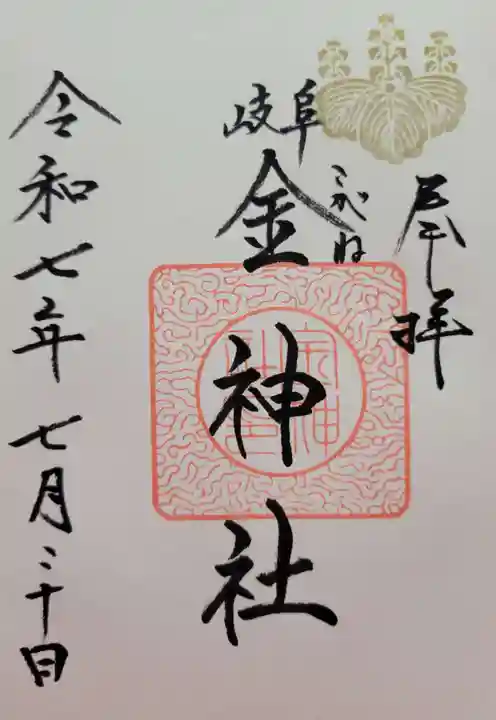 奉拝
岐阜
金神社
こがね
令和七年七月二十日